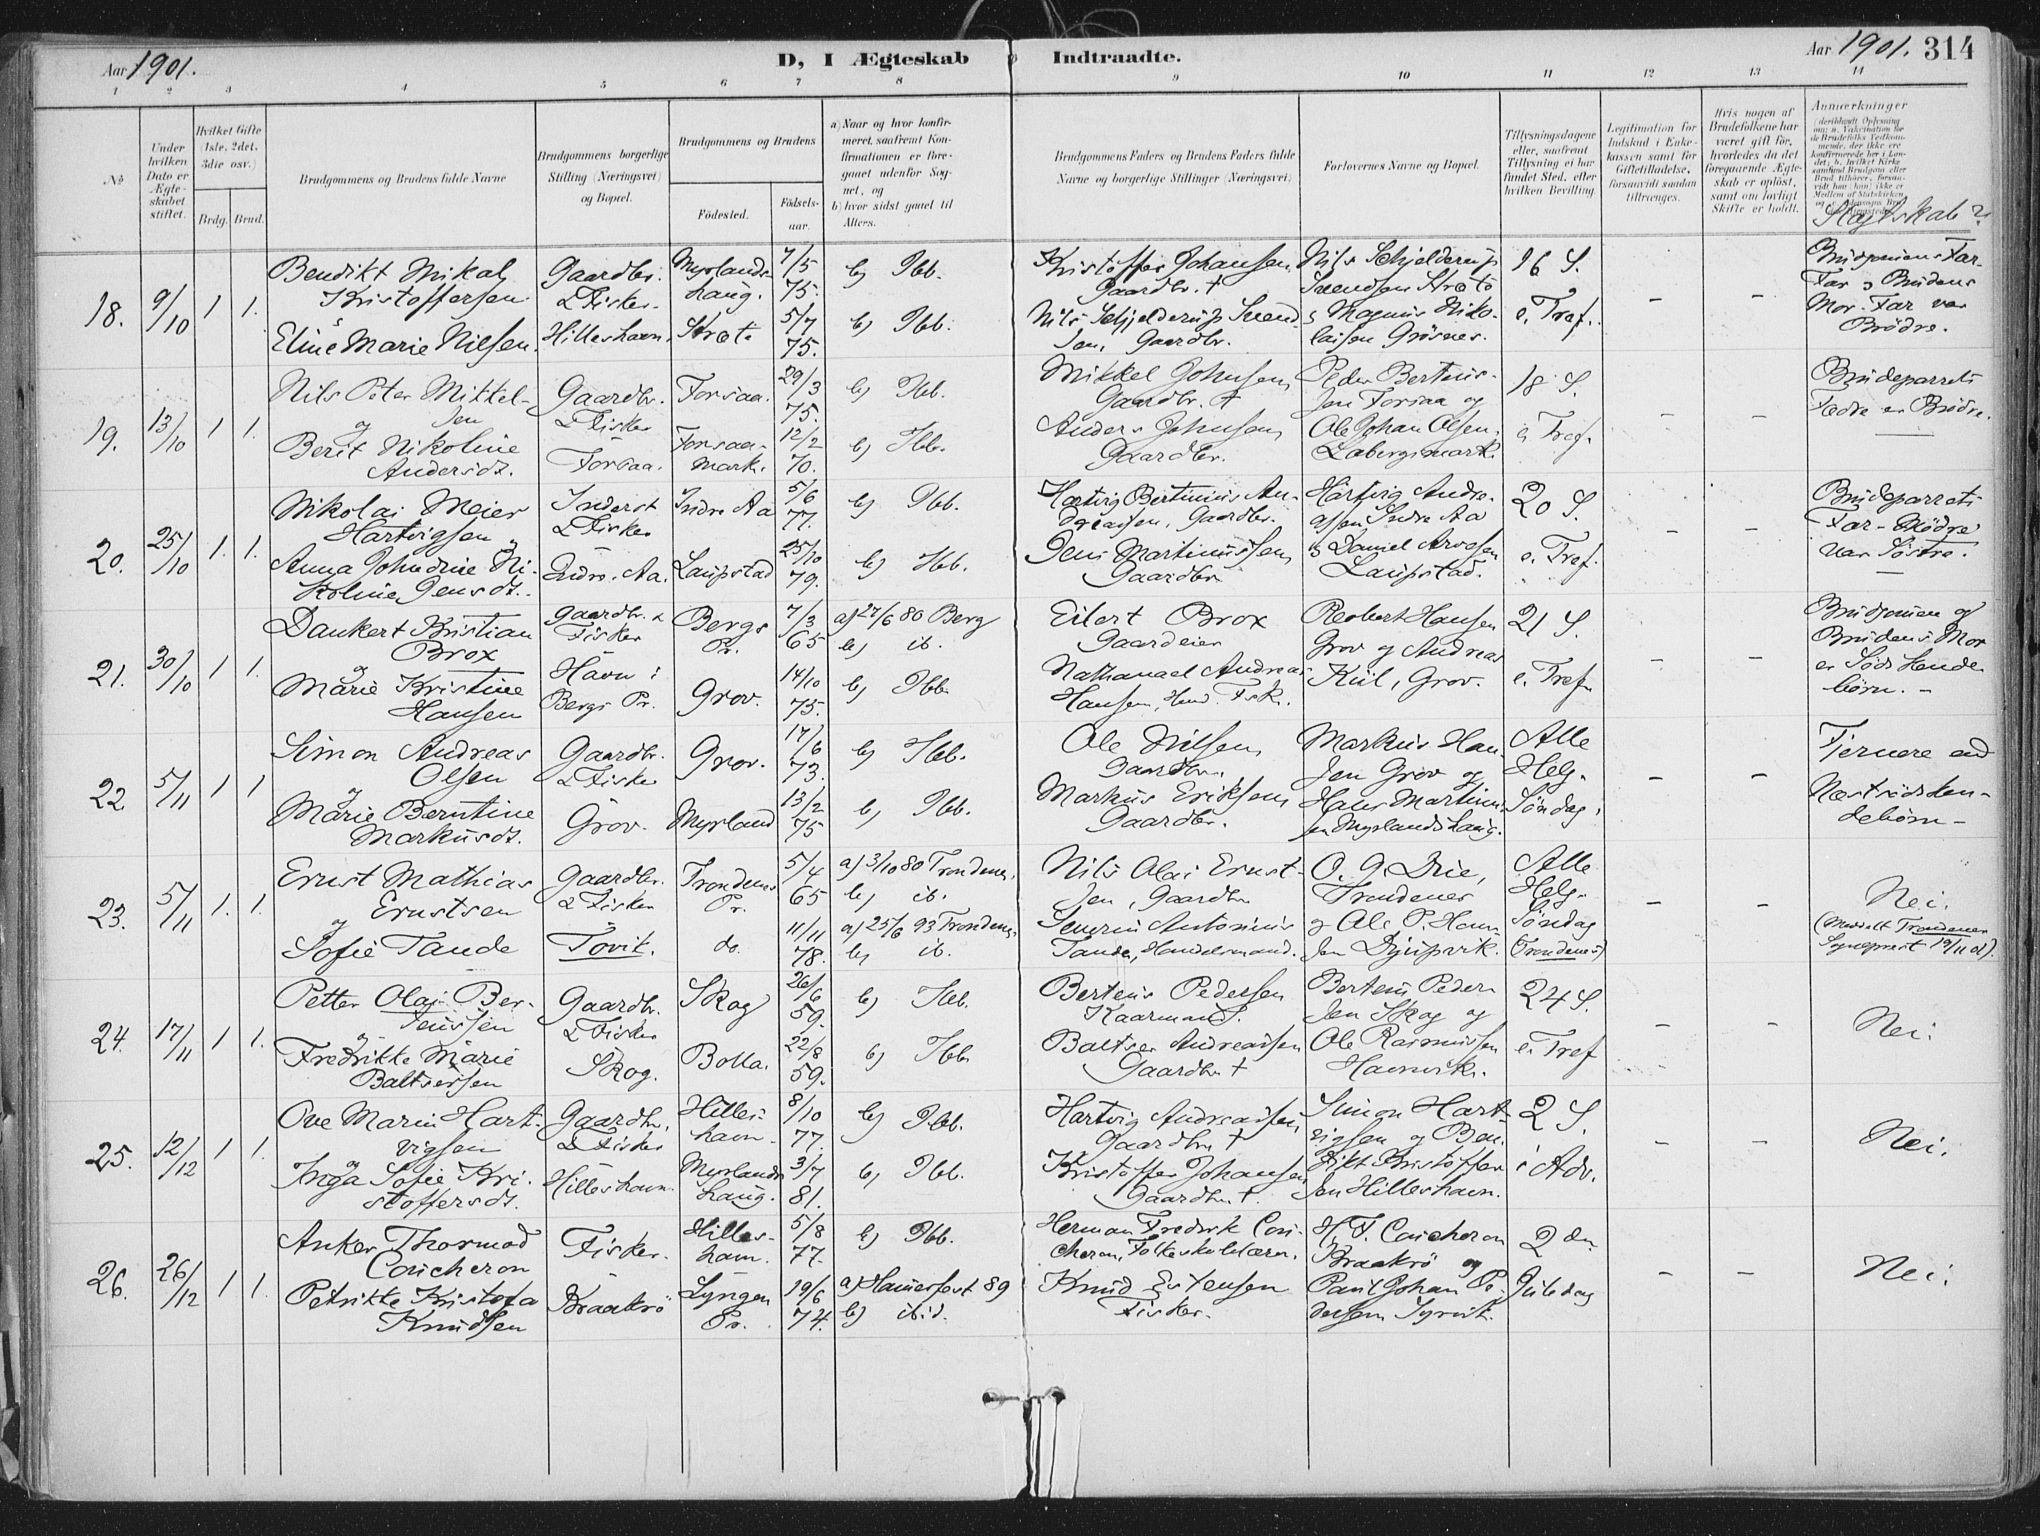 Aar 1901.
D, I Ægteskab Indtraadte.
Aar 1901. 314
1 2 3 4 5 6 7 8 9 10 11 12 13 14
No
Under hvilken Dato er Ægteskabet stiftet.
Hvilket Gifte (1ste, 2det, 3die osv.)
Brdg. Brud.
Brudgommens og Brudens fulde Navne
Brudgommens borgerlige Stilling (Næringsvei) og Bopæl.
Brudgommens og Brudens
Födested.
Födselsaar.
a) Naar og hvor konfirmeret, saafremt Konfirmationen er foregaaet udenfor Sognet, og
b) hvor sidst gaaet til Alters.
Brudgommens Faders og Brudens Faders fulde Navne og borgerlige Stillinger (Næringsvei)
Forlovernes Navne og Bopæl.
Tillysningsdagene eller, saafremt Tillysning ei har fundet Sted, efter hvilken Bevilling.
Legitimation for Indskud i Enkekassen samt for Giftetilladelse, forsaavidt saadan tiltrænges.
Hvis nogen af Brudefolkene har været gift för, hvorledes da det foregaaende Ægteskab er oplöst, samt om lovligt Skifte er holdt.
Anmerkninger
Slægtskab?
18. 9/10 1 1.
Bendikt Mikal
Kristoffersen
Eline Marie Nilsen.
Gaardbr.
& Fisker.
Hilleshavn.
Myrlands-
haug.
Stræte
7/5
75.
5/7
75.
b) Ibb.
b) Ibb.
Kristoffer Johansen,
Gaardbr. †
Nils Schjelderup Svend-
sen, Gaardbr.
Nils Schjelderup
Svendsen Stræte
& Magnus Niko-
laisen Grøsnes.
16 S.
e. Tref.
– –
Brudgomens Far-
Far & Brudens
Mor-Far var
Brødre.
19. 13/10 1 1.
Nils Peter Mikkel-
sen
og
Berit Nikoline
Andersdt.
Gaardbr.
& Fisker
Forsaa.
Forsaa.
Forsaa-
mark.
29/3
75.
12/2
70.
b) Ibb.
b) Ibb.
Mikkel Johnsen,
Gaardbr. †
Anders Johnsen,
Gaardbr.
Peder Berteus-
sen Forsaa og
Ole Johan Olsen,
Labergsmark.
18 S.
e Tref.
– –
Brudeparrets
Fædre er Brødre.
20. 25/10 1. 1.
Nikolai Meier
Hartvigsen
Anna Johndine Ni-
koline Jensdt.
Inderst
& Fisker
Indre. Aa.
Indre Aa
Laupstad
5/6
77.
25/10
79.
b) Ibb.
b) Ibb.
Hartvig Bertinius An-
dreassen, Gaardbr.
Jens Martinussen,
Gaardbr
Hartvig Andre-
assen Indre Aa
& Daniel Arvesen
Laupstad.
20 S.
e. Tref.
– –
Brudeparrets
Far-Mødre
var Søstre.
21. 30/10 1 1.
Dankert Kristian
Brox
og
Marie Kristine
Hansen
Gaardbr. &
Fisker
Havn i
Bergs Pr.
Bergs
Pr.
Grov.
7/3
65
14/10
75.
a) 27/6 80 Berg
b) ib.
b) Ibb.
Eilert Brox
Gaardeier
Nathanael Andreas
Hansen, Hmd. Fsk.
Reobert Hansen
Grov og Andreas
Kiil, Grov.
21 S.
e. Tref.
– –
Brudgomen og
Brudens Mor
er Søds kende
børn. –
22. 5/11 1 1
Simon Andreas
Olsen
og
Marie Berntine
Markusdt.
Gaardbr.
& Fiske
Grov.
Grov.
Myrland
17/6
73.
13/2
75
b) Ibb.
b) Ibb.
Ole Nilsen,
Gaardbr.
Markus Eriksen,
Gaardbr.
Markus Han-
sen Grov og
Hans Martinus-
sen Myrlandshaug.
Alle
Helg.
Søndag.
– –
Fjernere end
Næstsødsken-
debørn –
23. 5/11 1. 1.
Ernst Mathias
Ernstsen
og
Sofie Tande
Gaardbr.
& Fisker
Tovik.
Trondenes
Pr.
do.
5/4
65
11/11
78.
a) 3/10 80 Trondenes.
b) ib.
a) 25/6 93 Trondenes.
b) ib.
Nils Olai Ernst-
sen, Gaardbr
Severin Antonius
Tande, Handelsmand.
O. G. Drie,
Trondenes
og Ole P. Han-
sen Djupvik.
Alle
Helg.
Søndag
(Trondenes)
– –
Nei.
(Meddelt Trondenes
Sogneprest 19/11 01).
24. 17/11 1 1.
Petter Olai Ber-
teussen
og
Fredrikke Marie
Baltsersen
Gaardbr.
& Fisker
Skog.
Skog
Bolla.
26/6
59.
22/8
59.
b) Ibb.
b) Ibb
Berteus Pedersen
Kaarmand.
Baltser Andreassen
Gaardbr †
Berteus Peder-
sen Skog og
Ole Rasmussen
Havnvik.
24 S.
e. Tref
– –
Nei.
25. 12/12 1 1.
Ove Marin Hart-
vigsen
og
Inga Sofie Kri-
stoffersdt.
Gaardbr.
& Fisker
Hilleshavn.
Hilles-
havn.
Myrlands
haug.
8/10
77.
3/7
81.
b) Ibb.
b) Ibb.
Hartvig Andreassen,
Gaardbr †
Kristoffer Johansen
Gaardbr †.
Simon Hart-
vigsen og Ben-
dikt Kristoffer-
sen Hilleshavn.
2 S.
i Adv.
– –
Nei.
26. 26/12 1 1.
Anker Thormod
Coucheron
Petrikke Kristofa
Knudsen
Fisker.
Braakrø
Hilles-
havn.
Lyngen
Pr.
5/8
77.
19/6
74.
b) Ibb.
a) Hammerfest 89
b) ibid.
Herman Fredrik Cou-
cheron, Folkeskolelærer.
Knud Estensen
Fisker.
H. F. Coucheron
Braakrø og
Paul Johan Pe-
dersen Syrvik.
2 den
Juledag
– –
Nei.